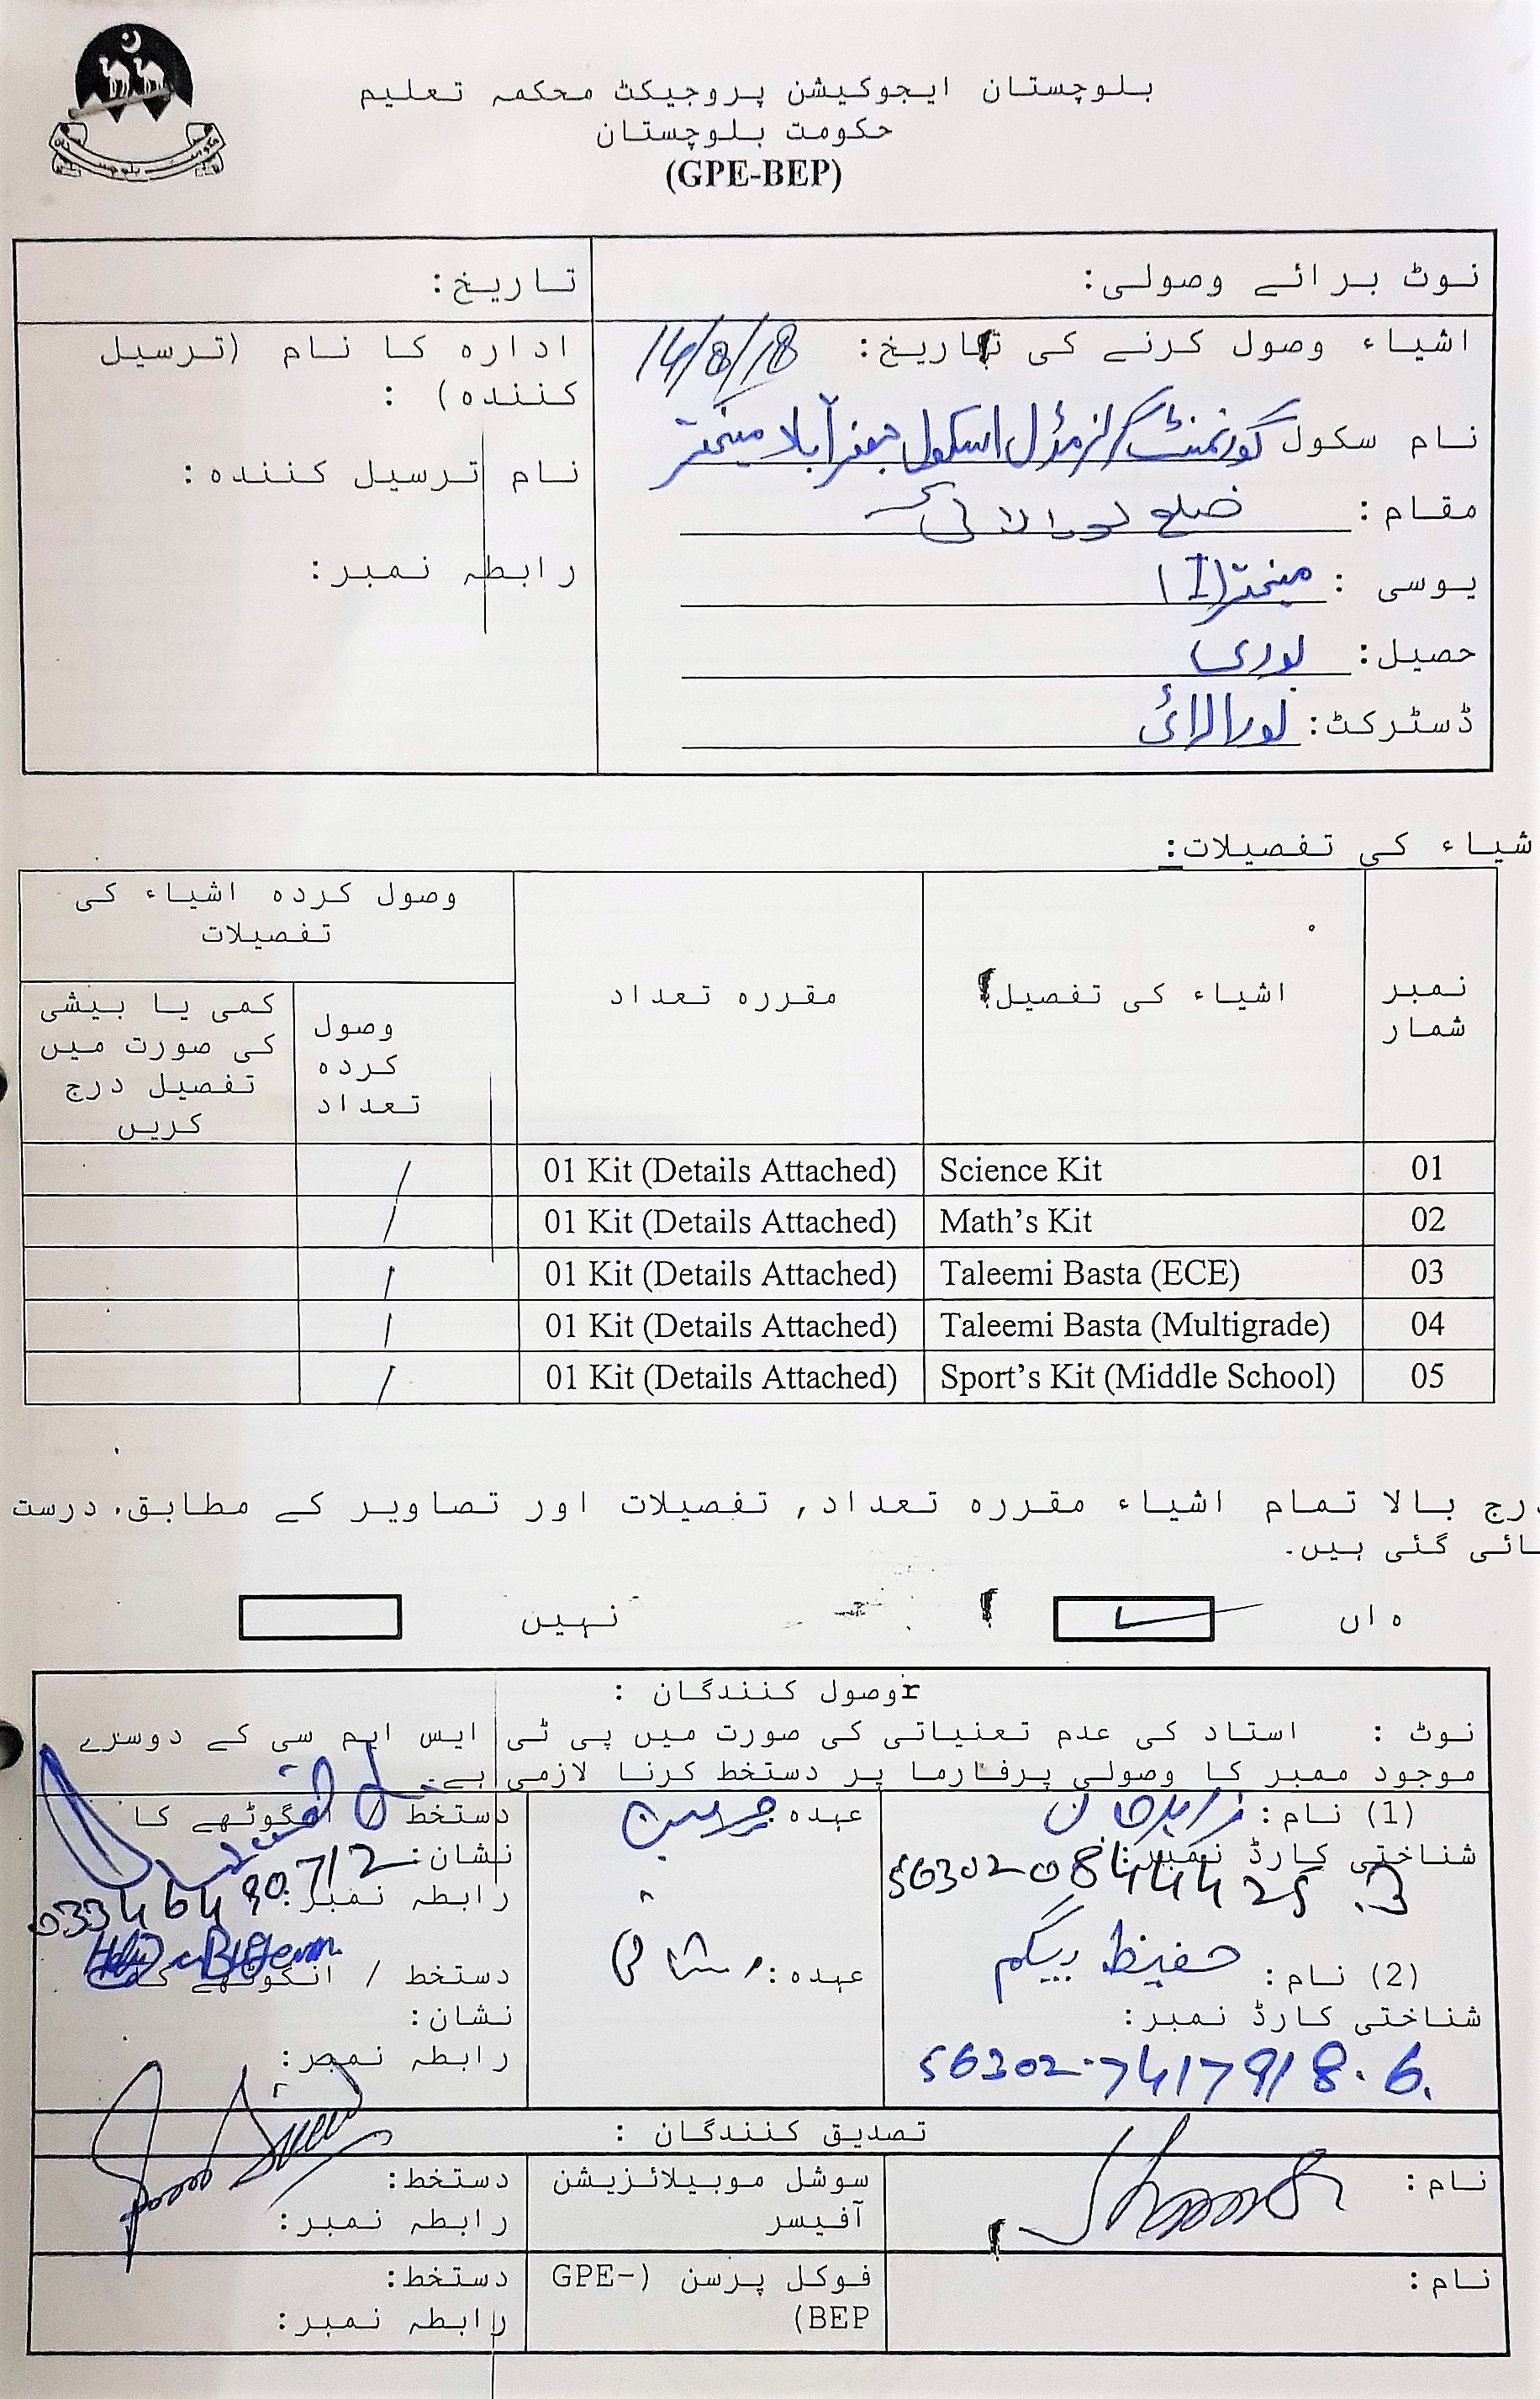 بلوچستان ایجوکیشن پروجیکٹ محکمہ تعلیم
حکومت بلوچستان
(GPE-BEP)
نوٹ برائے وصولی:
اشیاء وصول کرنے کی تاریخ: 14/8/18
نام سکول گورنمنٹ گرلز مڈل اسکول مینختر
مقام: ضلع لورالائی
یوسی : مینختر (I)
حصیل: بوری
ڈسٹرکٹ: لورالائی
تاریخ:
ادارہ کا نام (ترسیل
کنندہ) :
نام ترسیل کنندہ:
رابطہ نمبر:
شیاء کی تفصیلات:
نمبر شمار
اشیاء کی تفصیل
مقررہ تعداد
وصول کردہ اشیاء کی
تفصیلات
وصول
کردہ
تعداد
کمی یا بیشی
کی صورت میں
تفصیل درج
کریں
01 Science Kit 01 Kit (Details Attached) /
02 Math’s Kit 01 Kit (Details Attached) /
03 Taleemi Basta (ECE) 01 Kit (Details Attached) /
04 Taleemi Basta (Multigrade) 01 Kit (Details Attached) /
05 Sport’s Kit (Middle School) 01 Kit (Details Attached) /
رج بالا تمام اشیاء مقررہ تعداد, تفصیلات اور تصاویر کے مطابق. درست
ائی گئی ہیں۔
ہاں ✓ نہیں
rوصول کنندگان :
نوٹ : استاد کی عدم تعنیاتی کی صورت میں پی ٹی ایس ایم سی کے دوسرے
موجود ممبر کا وصولی پرفارما پر دستخط کرنا لازمی ہے۔
(1) نام:
شناختی کارڈ نمبر:
56302 0844425 .3
عہدہ چیرمین
دستخط / انگوٹھے کا
نشان:
رابطہ نمبر:
(2) نام: حفیظ بیگم
شناختی کارڈ نمبر:
56302-7417918.6.
عہدہ:
دستخط / انگوٹھے کا
نشان:
رابطہ نمبر:
تصدیق کنندگان :
نام:
سوشل موبیلائزیشن
آفیسر
دستخط:
رابطہ نمبر:
نام:
فوکل پرسن (GPE-
BEP)
دستخط:
رابطہ نمبر: